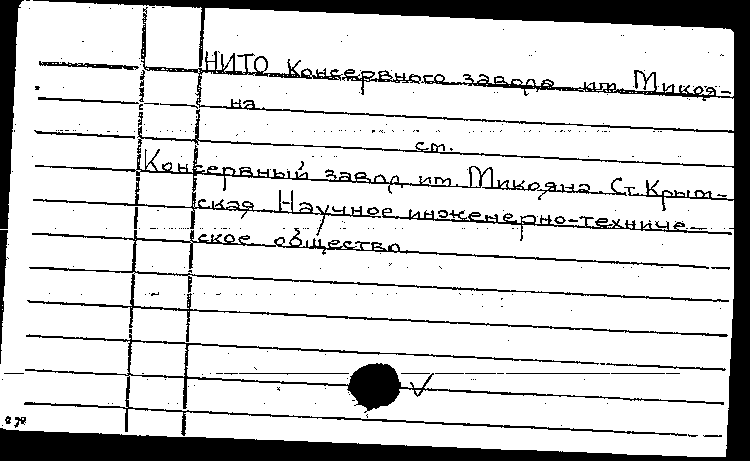 НИТО Консервного завода им. Микоя-
на
см.
Консервный завод им. Микояна. Ст. Крым-
ская Научное инженерно-техниче-
ское общество.